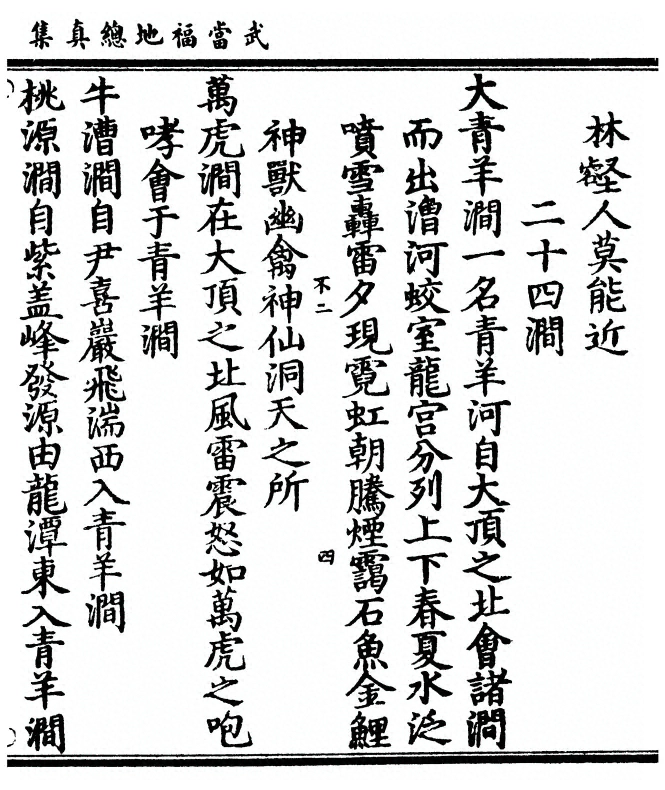 武當福地總真集
林壑人莫能近
二十四澗
大青羊澗一名青羊河自大頂之北會諸澗
而出漕河蛟室龍宮分列上下春夏水泛
噴雪轟雷夕現霓虹朝騰煙靄石魚金鯉
不二
四
神獸幽禽神仙洞天之所
萬虎澗在大頂之北風雷震怒如萬虎之咆
哮會于青羊澗
牛漕澗自尹喜巖飛湍西入青羊澗
桃源澗自紫蓋峰發源由龍潭東入青羊澗